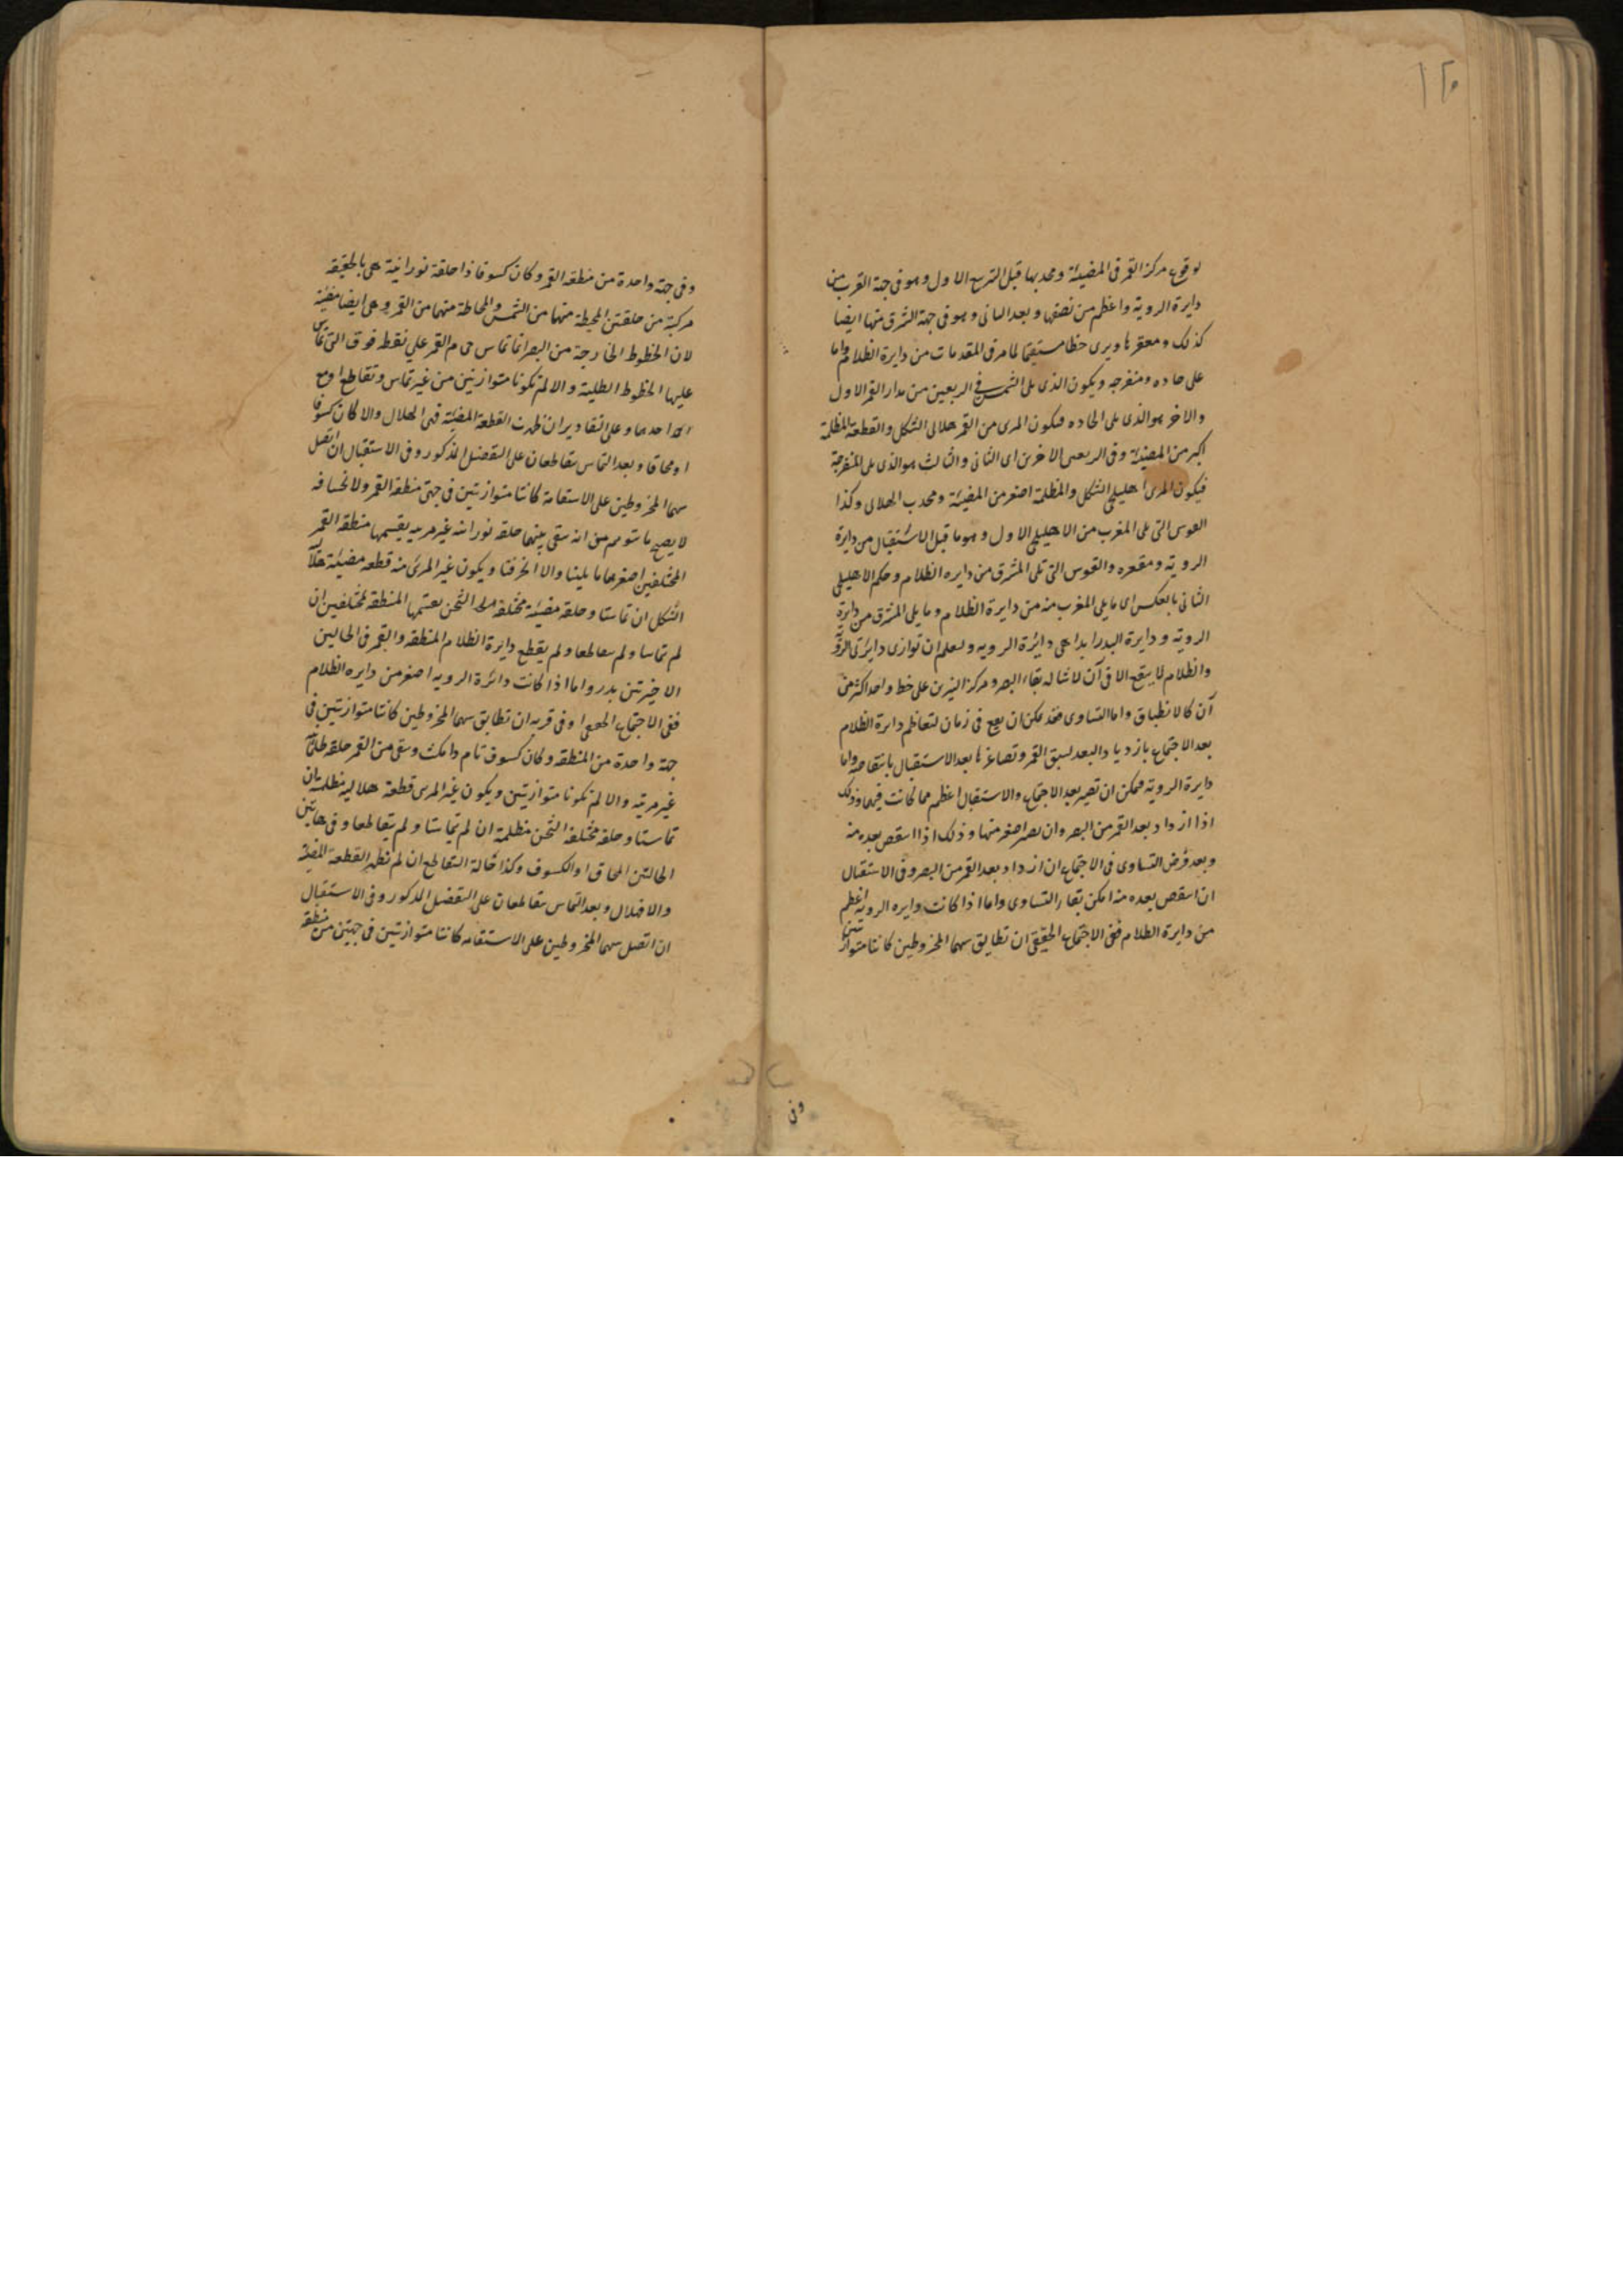 ١٢٥
لوقوع مركز القمر فى المضيئة ومحدبها قبل التربيع الاول وهو فى جهة القرب من
دايرة الروية واعظم من نصفها وبعد الثانى وهو فى جهة الشرق منها ايضا
كذلك ومقعرها ويرى خطا مستقيما لما مر فى المقدمات من دايرة الظلام واما
على حاده ومنفرجه ويكون الذى يلى الشمس فى الربعين من مدار القمر الاول
والاخر هو الذى يلى الحاده فيكون المرى من القمر هلالى الشكل والقطعة المظلمة
اكبر من المضيئة وفى الربعين الاخرين اى الثانى والثالث هو الذى يلى المنفرجة
فيكون المرى اهليلجى الشكل والمظلمة اصغر من المضيئة ومحدب الهلالى وكذا
القوس التى تلى المغرب من الاهليلجى الاول وهو ما قبل الاستقبال من دايرة
الروية ومقعره والقوس التى تلى المشرق من دايره الظلام وحكم الاهليلجى
الثانى بالعكس اى ما يلى المغرب منه من دايرة الظلام وما يلى المشرق من دايرة
الروية ودايرة البدر ابدا هى دائرة الرويه وليعلم ان توازى دايرتى الروية
والظلام لا يقع الا فى آن لاستحالة بقاء البصر ومركز النيرين على خط واحد اكثر من
آن كالانطباق واما التساوى فقد يمكن ان يقع فى زمان لتعاظم دايرة الظلام
بعد الاجتماع بازدياد البعد لسبق القمر وتصاغرها بعد الاستقبال بانتقاصه واما
دايرة الروية فيمكن ان تصير بعد الاجتماع والاستقبال اعظم مما كانت فيهما وذلك
اذا ازداد بعد القمر من البصر وان تصير اصغر منها وذلك اذا انتقص بعده منه
وبعد فرض التساوى فى الاجتماع ان ازداد بعد القمر من البصر وفى الاستقبال
ان انتقص بعده منه امكن بقاء التساوى واما اذا كانت دايره الرويه اعظم
من دايرة الظلام ففى الاجتماع الحقيقى ان تطابق سهما المخروطين كانتا متوازيتين
وفى
وفى جهة واحدة من منطقه القمر وكان كسوفا ذا حلقة نورانية هى بالحقيقه
مركبة من حلقتين المحيطة منهما من الشمس والمحاطة منهما من القمر وهى ايضا مضيئة
لان الخطوط الخارجة من البصر انما تماس جرم القمر على نقط فوق التى تماس
عليها الخطوط الظلية والا لم تكونا متوازيتين من غير تماس وتقاطع او مع
احدهما وعلى التقادير ان ظهرت القطعة المضيئة فهى الهلال والا كان كسوفا
او محاقا وبعد التماس يتقاطعان على التفصيل المذكور وفى الاستقبال ان اتصل
سهما المخروطين على الاستقامة كانتا متوازيتين فى جهتى منطقة القمر ولانخسافه
لا يصح ما يتوهم من انه يبقى بينهما حلقه نورانيه غير مرييه يقسمها منطقه القمر
المختلفين اصغرهما ما يلينا والا انحرفتا ويكون غير المرئى منه قطعه مضيئة هلالية
الشكل ان تماستا وحلقه مضيئة مختلفة الثخن بقسميها المنطقه المختلفين ان
لم تماسا ولم يتقاطعا ولم يقطع دايرة الظلام المنطقه والقمر فى الحالين
الاخيرتين بدر واما اذا كانت دائرة الرويه اصغر من دايره الظلام
ففى الاجتماع الحقيقى او فى قربه ان تطابق سهما المخروطين كانتا متوازيتين فى
جهة واحدة من المنطقه وكان كسوف تام ذا مكث وبقى من القمر حلقه ظلمانية
غير مرئيه والا لم تكونا متوازيتين ويكون غير المرى قطعة هلاليه مظلمه ان
تماستا وحلقه مختلفه الثخن مظلمة ان لم تماستا ولم يتقاطعا وفى هاتين
الحالتين المحاق او الكسوف وكذا حالة التقاطع ان لم تظهر القطعة المضيئة
والا فهلال وبعد التماس يتقاطعان على التفصيل المذكور وفى الاستقبال
ان اتصل سهما المخروطين على الاستقامه كانتا متوازيتين فى جهتين من منطقه